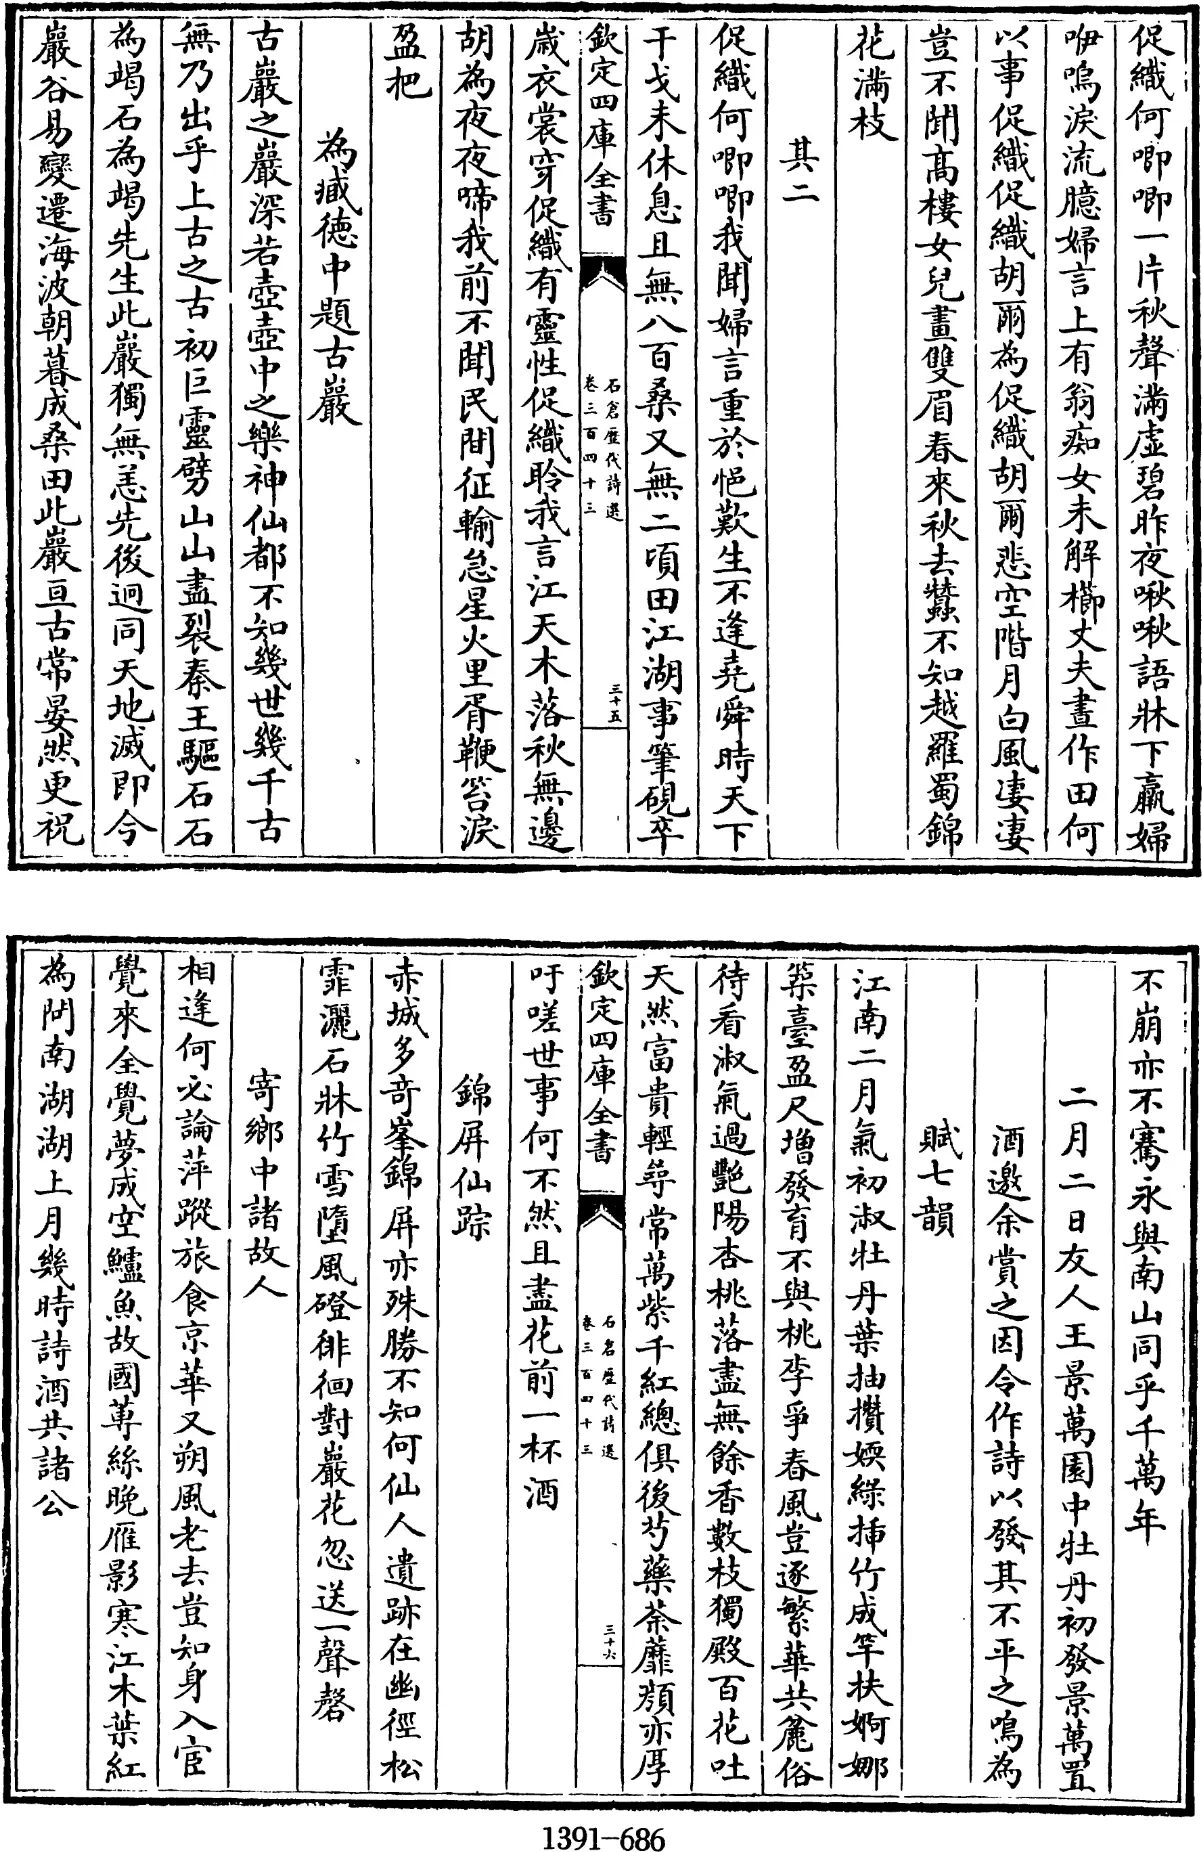 促織何唧唧一片秋聲滿虛碧昨夜啾啾語牀下羸婦
咿嗚淚流臆婦言上有翁痴女未解櫛丈夫晝作田何
以事促織促織胡爾為促織胡爾悲空階月白風凄凄
豈不聞髙樓女兒畫雙眉春來秋去蠶不知越羅蜀錦
花滿枝
其二
促織何唧唧我聞婦言重於悒歎生不逢堯舜時天下
干戈未休息且無八百桑又無二頃田江湖事筆硯卒
欽定四庫全書
石倉歷代詩選
卷三百四十三
三十五
嵗衣裳穿促織有靈性促織聆我言江天木落秋無邊
胡為夜夜啼我前不聞民間征輸急星火里胥鞭笞淚
盈把
為臧徳中題古巖
古巖之巖深若壺壺中之樂神仙都不知幾世幾千古
無乃出乎上古之古初巨靈劈山山盡裂秦王驅石石
為竭石為竭先生此巖獨無恙先後迥同天地滅即今
巖谷易變遷海波朝暮成桑田此巖亘古常晏然更祝
不崩亦不騫永與南山同乎千萬年
二月二日友人王景萬園中牡丹初發景萬置
酒邀余賞之因令作詩以發其不平之鳴為
賦七韻
江南二月氣初淑牡丹葉抽攢嫫綠揷竹成竿扶婀娜
築臺盈尺增發育不與桃李爭春風豈逐繁華共麄俗
待看淑氣過艷陽杏桃落盡無餘香數枝獨殿百花吐
天然富貴輕尋常萬紫千紅總俱後芍藥荼蘼顔亦厚
欽定四庫全書
石倉歷代詩選
卷三百四十三
三十六
吁嗟世事何不然且盡花前一杯酒
錦屏仙踪
赤城多竒峯錦屏亦殊勝不知何仙人遺跡在幽徑松
霏灑石牀竹雪墮風磴徘徊對巖花忽送一聲磬
寄鄉中諸故人
相逢何必論萍蹤旅食京華又朔風老去豈知身入宦
覺來全覺夢成空鱸魚故國蓴絲晚雁影寒江木葉紅
為問南湖湖上月幾時詩酒共諸公
1391-686